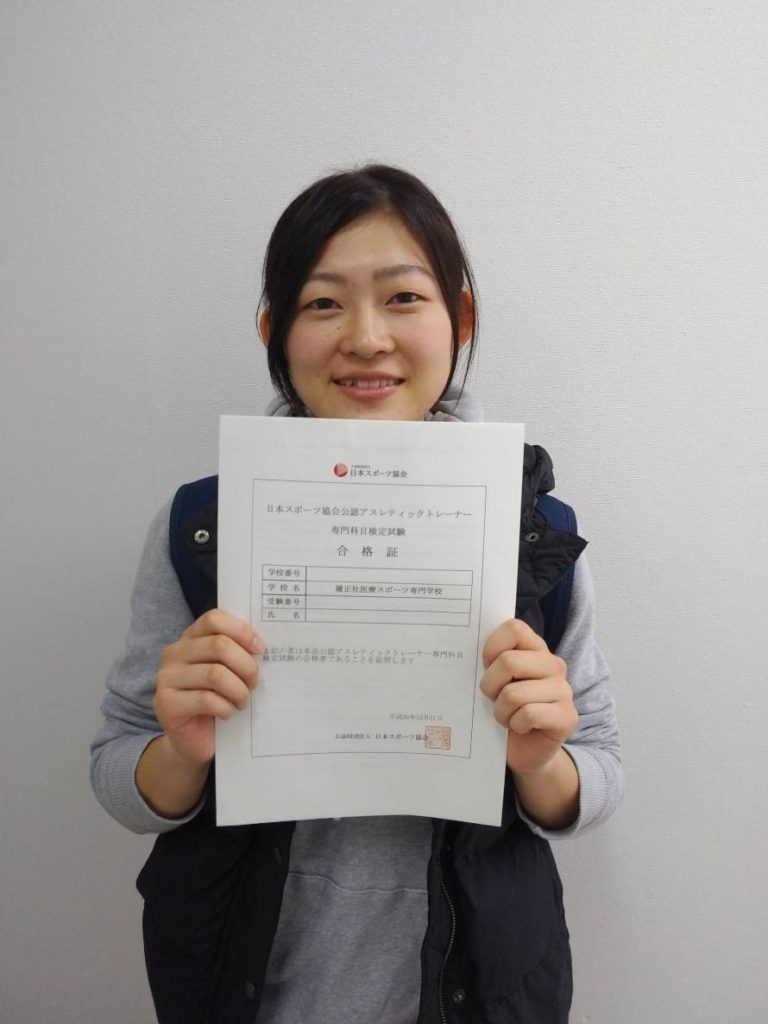 公益財団法人
日本スポーツ協会
日本スポーツ協会公認アスレティックトレーナー
専門科目検定試験
合格証
学校番号
学校名 履正社医療スポーツ専門学校
受験番号
氏名
上記の者は本会公認アスレティックトレーナー専門科目
検定試験の合格者であることを証明します
平成30年12月21日
公益財団法人 日本スポーツ協会